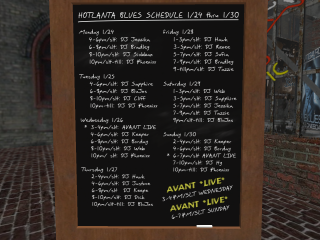 HOTLANTA BLUES SCHEDULE 1/24 thru 1/30
Monday 1/24
4-6pm/slt: DJ Jessika
6-8pm/slt: DJ Bradley
8-10pm/slt: DJ
10pm-till: DJ DJ Phoenix
Tuesday 1/25
4-6pm/slt: DJ Sapphire
6-8pm/slt: DJ BluJas
8-10pm/slt: DJ Cliff
10pm-till: DJ DJ Phoenix
Wednesday 1/26
* 3-4pm/slt: AVANT LIVE
4-6pm/slt: DJ Keeper
6-8pm/slt: DJ Birdog
8-10pm/slt: DJ Web
10pm/ slt: DJ Phoenix
Thursday 1/27
2-4pm/slt: DJ Hawk
4-6pm/slt: DJ
6-8pm/slt: DJ Birdog
8-10pm/slt: DJ Dick
10pm/slt-till: DJ BluJas
Friday 1/28
1-3pm/slt: DJ Hawk
3-5pm/slt: DJ
5-7pm/slt: DJ
7-9pm/slt: DJ Bradley
9-till/slt: DJ
Saturday 1/29
1-3pm/slt: DJ Web
3-5pm/slt: DJ Sapphire
5-7pm/slt: DJ Jessika
7-9pm/slt: DJ
9pm/slt-till: DJ BluJas
Sunday 1/30
2-4pm/slt: DJ Keeper
4-6pm/slt: DJ Birdog
* 6-7pm/slt: AVANT LIVE
7-10pm/slt: DJ
10-till: DJ Phoenix
AVANT *LIVE*
3-4PM/SLT WEDNESDAY
AVANT *LIVE*
6-7PM/SLT SUNDAY